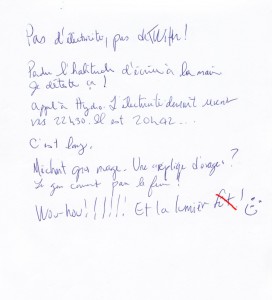 Pas d'électricité, pas de Twitter!
Perdu l'habitude d'écrire à la main
Je déteste ça!
appel à Hydro. L'électricité devrait revenir
vers 22h30. Il est 20h42...
C'est long.
Méchant gros nuage. Une orage?
La fin!
Wou-hou!!!!!! Et la lumière fut! :)